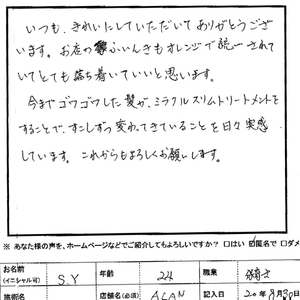 いつも、きれいにしていただいてありがとうござい
ます。お店のふんいきもオレンジで統一されて
いてとても落ち着いていいと思います。
今までゴワゴワした髪が、ミラクルスリムトリートメントを
することで、すこしずつ変わってきていることを日々実感
しています。これからもよろしくお願いします。
※ あなた様の声を、ホームページなどでご紹介してもよろしいですか? 口はい 匿名で 口ダメ
お名前 (イニシャル可) S.Y 年齢 24 職業 保育士
施術名 店舗名(必須) ALAN 記入日 20 年 8月30日